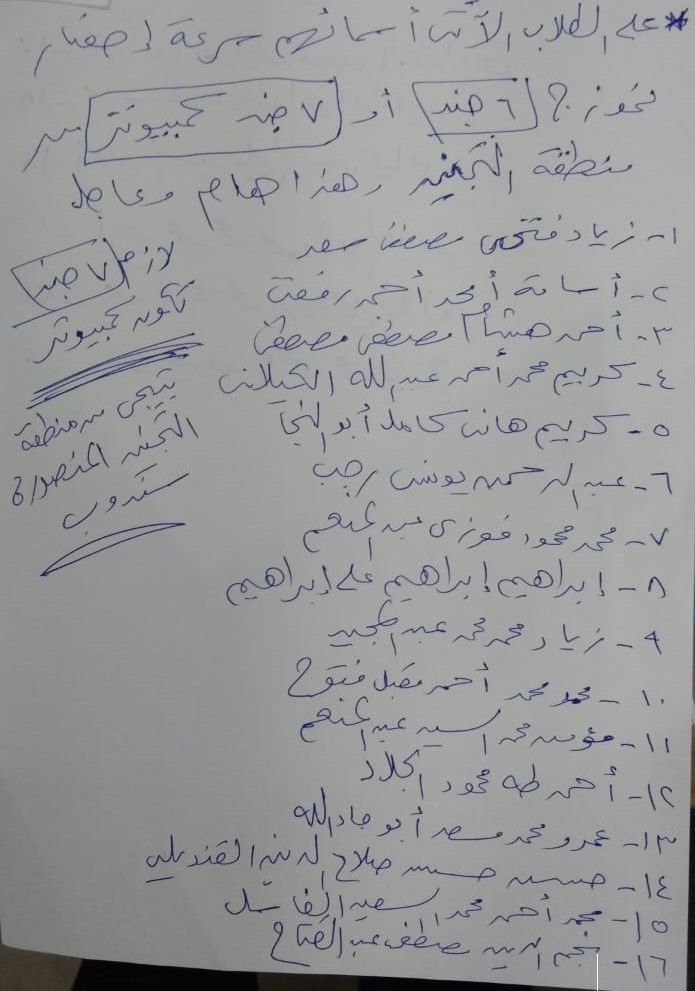 * على الطلاب الآتى أسمائهم سرعة إحضار
نموذج ٦ جند أو ٧ جند كمبيوتر من
منطقة التجنيد وهذا هام وعاجل
١- زياد فتحى مصطفى سعد
٢- أسامة أمجد أحمد رفعت
٣- أحمد هشام مصطفى مصطفى
٤- كريم محمد أحمد عبد الله الكيلانى
٥- كريم هانى كامل أبو النجا
٦- عبد الرحمن يونس رجب
٧- محمد محمود فوزى عبد المنعم
٨- إبراهيم إبراهيم على إبراهيم
٩- زياد محمد محمد عبد المجيد
١٠- محمد محمد أحمد فتوح
١١- مؤمن محمد السيد عبد المنعم
١٢- أحمد طه محمود الجلاد
١٣- عمرو محمد مسعد أبو جاد الله
١٤- حسين حسين صلاح الدين القنديلى
١٥- محمد أحمد محمد السعيد
١٦- نجم الدين مصطفى عبد الفتاح
لازم ٧ جند
تكون كمبيوتر
يتيجى من منطقة
التجنيد المنصورة
سندوب